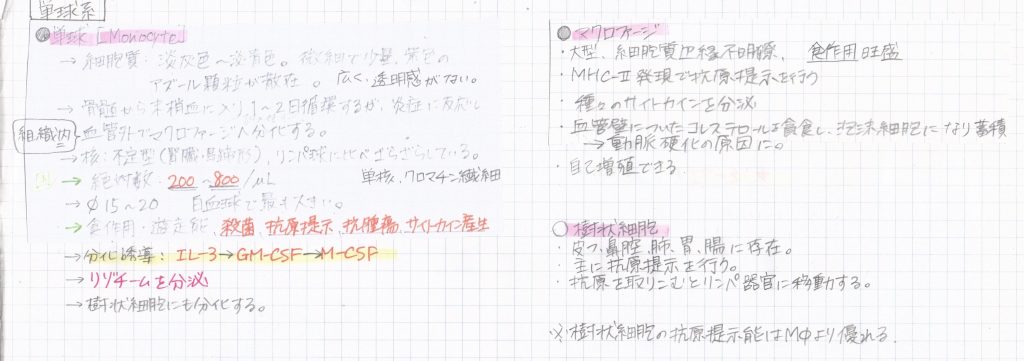 単球系
単球 [Monocyte]
→ 細胞質：淡灰色～淡青色。微細で少量、紫色の
アズール顆粒が散在。広く、透明感がない。
→ 骨髄から末梢血に入り1～2日循環するが、炎症に反応し
組織内
血管外でマクロファージへ分化する。
→ 核：不定型（腎臓・馬蹄形）、リンパ球に比べざらざらしている。
単核、クロマチン繊細
→ 絶対数：200～800/μL
→ φ15～20 白血球で最も大きい。
→ 食作用・遊走能、殺菌、抗原提示、抗腫瘍、サイトカイン産生
→ 分化誘導：IL-3→GM-CSF→M-CSF
→ リゾチームを分泌
→ 樹状細胞にも分化する。
マクロファージ
・大型、細胞質辺縁不明瞭、食作用旺盛
・MHC-Ⅱ発現で抗原提示を行う
・種々のサイトカインを分泌
・血管壁についたコレステロールを貪食し、泡沫細胞になり蓄積
→動脈硬化の原因に。
・自己増殖できる
樹状細胞
・皮フ、鼻腔、肺、胃、腸に存在。
・主に抗原提示を行う。
・抗原を取りこむとリンパ器官に移動する。
※樹状細胞の抗原提示能はMΦより優れる。